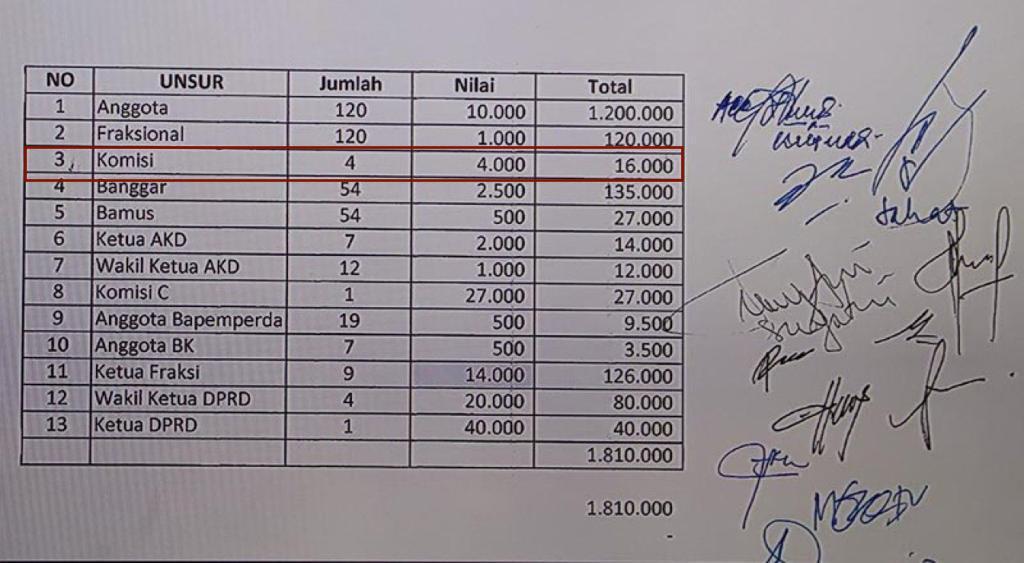 NO UNSUR Jumlah Nilai Total
1 Anggota 120 10.000 1.200.000
2 Fraksional 120 1.000 120.000
3 Komisi 4 4.000 16.000
4 Banggar 54 2.500 135.000
5 Bamus 54 500 27.000
6 Ketua AKD 7 2.000 14.000
7 Wakil Ketua AKD 12 1.000 12.000
8 Komisi C 1 27.000 27.000
9 Anggota Bapemperda 19 500 9.500
10 Anggota BK 7 500 3.500
11 Ketua Fraksi 9 14.000 126.000
12 Wakil Ketua DPRD 4 20.000 80.000
13 Ketua DPRD 1 40.000 40.000
1.810.000
1.810.000
-